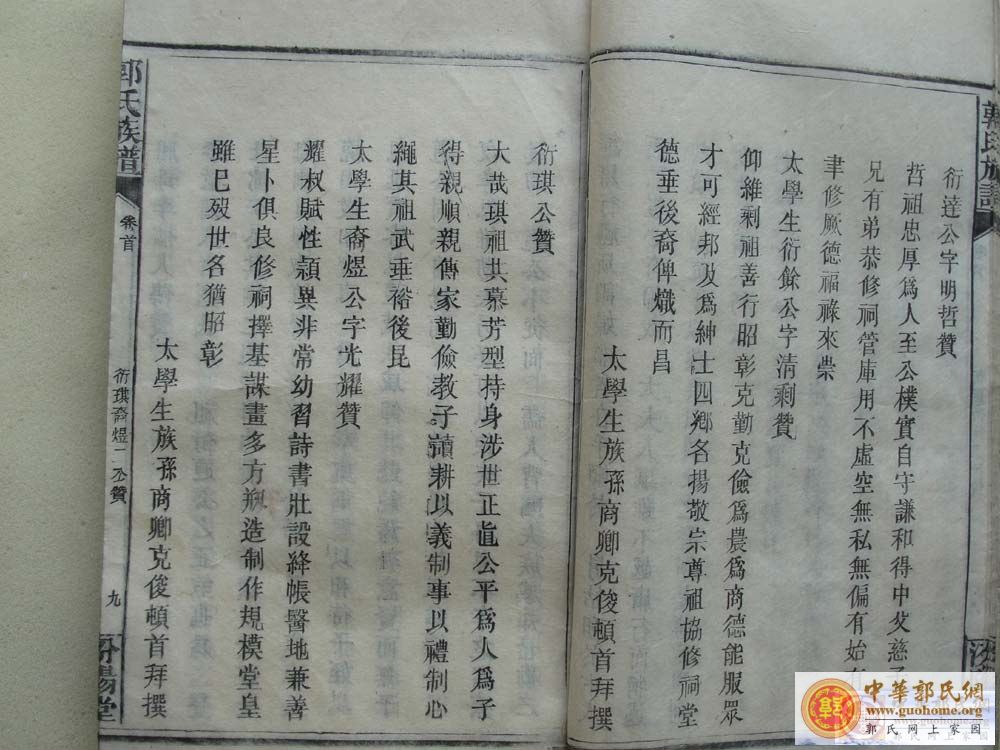 郭氏族譜
衍達公字明哲贊
哲祖忠厚爲人至公樸實自守謙和得中父慈子
兄有弟恭修祠管庫用不虛空無私無偏有始有
聿修厥德福祿來崇
太學生衍餘公字清剩贊
仰維剩祖善行昭彰克勤克儉爲農爲商德能服眾
才可經邦及爲紳士四鄉名揚敬宗尊祖協修祠堂
德垂後裔俾熾而昌
太學生族孫商卿克俊頓首拜撰
衍琪公贊
大哉琪祖共慕芳型持身涉世正直公平爲人爲子
得親順親傳家勤儉教子讀耕以義制事以禮制心
繩其祖武垂裕後昆
太學生裔煜公字光耀贊
耀叔賦性穎異非常幼習詩書壯設絳帳醫地兼善
星卜俱良修祠擇基謀畫多方瓶造制作規模堂皇
雖已歿世名猶昭彰
太學生族孫商卿克俊頓首拜撰
郭氏族譜
卷首
衍琪裔煜二公贊
九
汾陽堂
中華郭氏網
www.guohome.org
郭氏网上家园